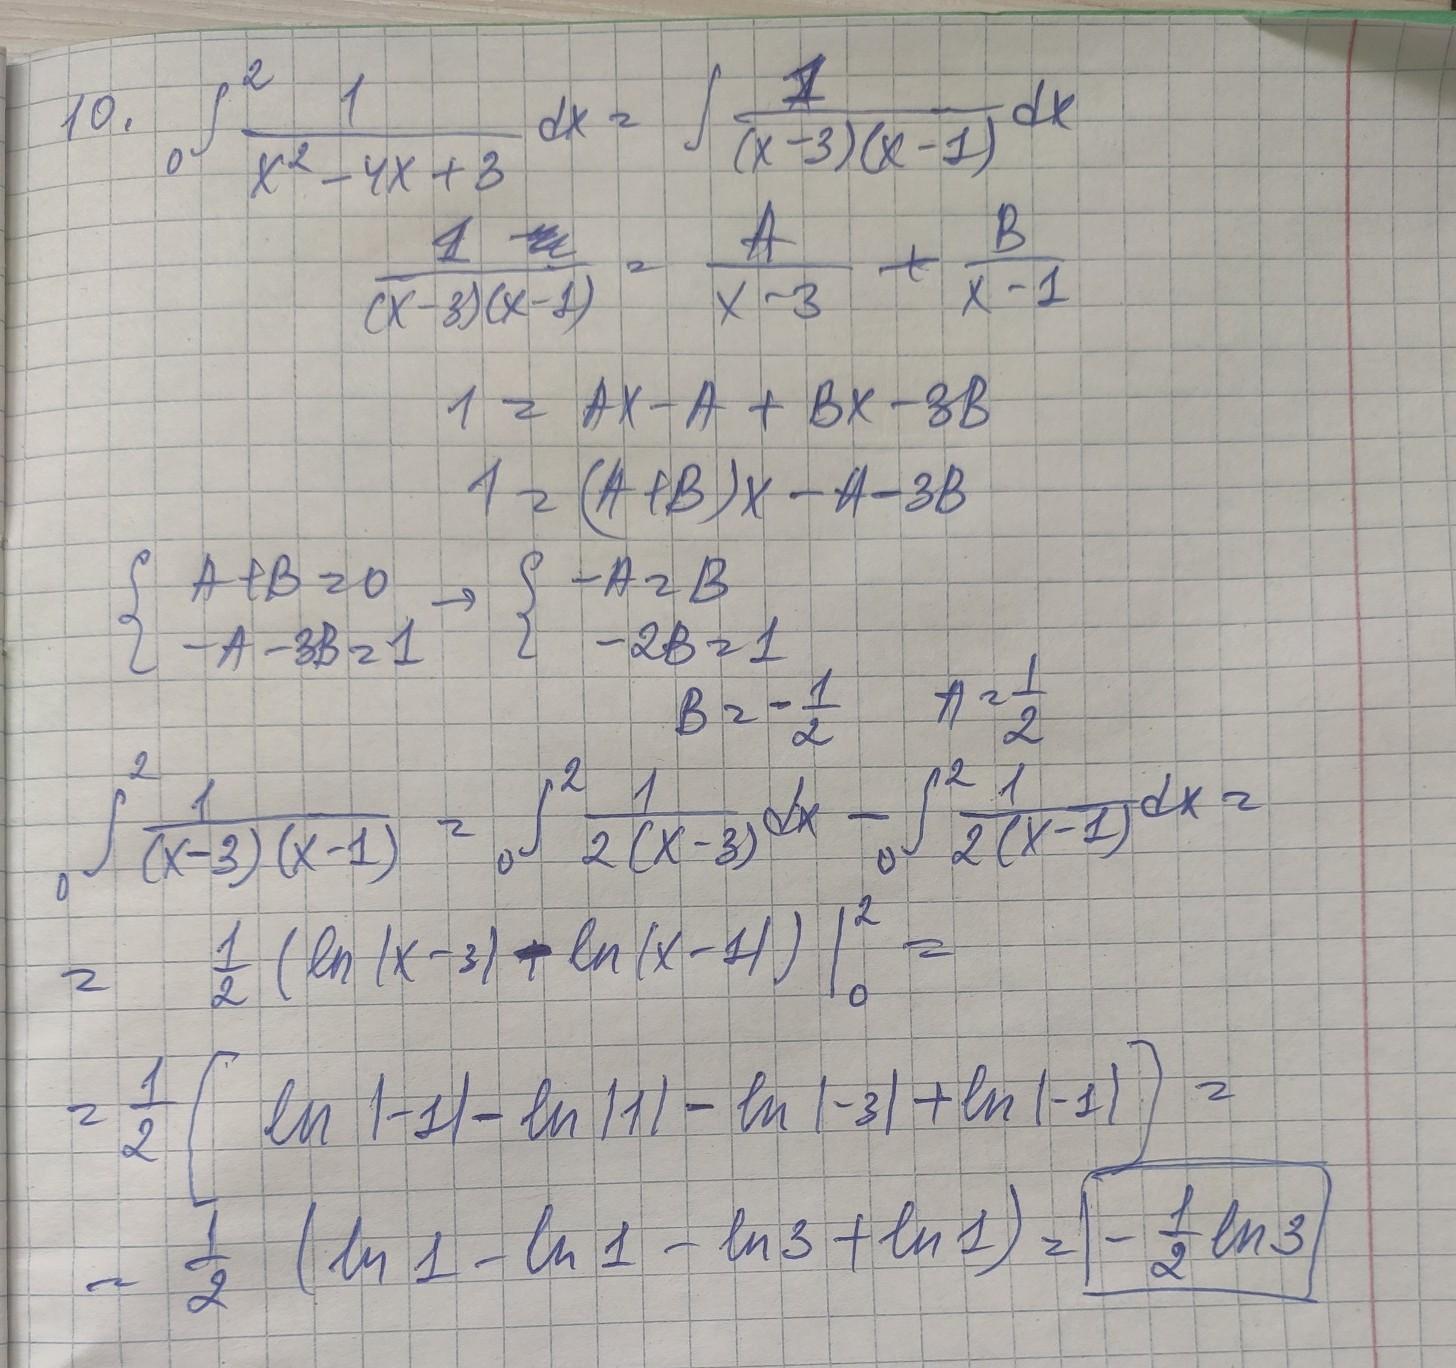 10. ₀∫² 1/(x² - 4x + 3) dx = ∫ 1/((x-3)(x-1)) dx
1/((x-3)(x-1)) = A/(x-3) + B/(x-1)
1 = Ax - A + Bx - 3B
1 = (A+B)x - A - 3B
{ A+B=0 → { -A=B
-A-3B=1 -2B=1
B=-1/2 A=1/2
₀∫² 1/((x-3)(x-1)) = ₀∫² 1/(2(x-3)) dx - ₀∫² 1/(2(x-1)) dx =
= 1/2 (ln|x-3| - ln|x-1|) |₀² =
= 1/2 [ln|-1| - ln|1| - ln|-3| + ln|-1|] =
= 1/2 (ln1 - ln1 - ln3 + ln1) = -1/2 ln3